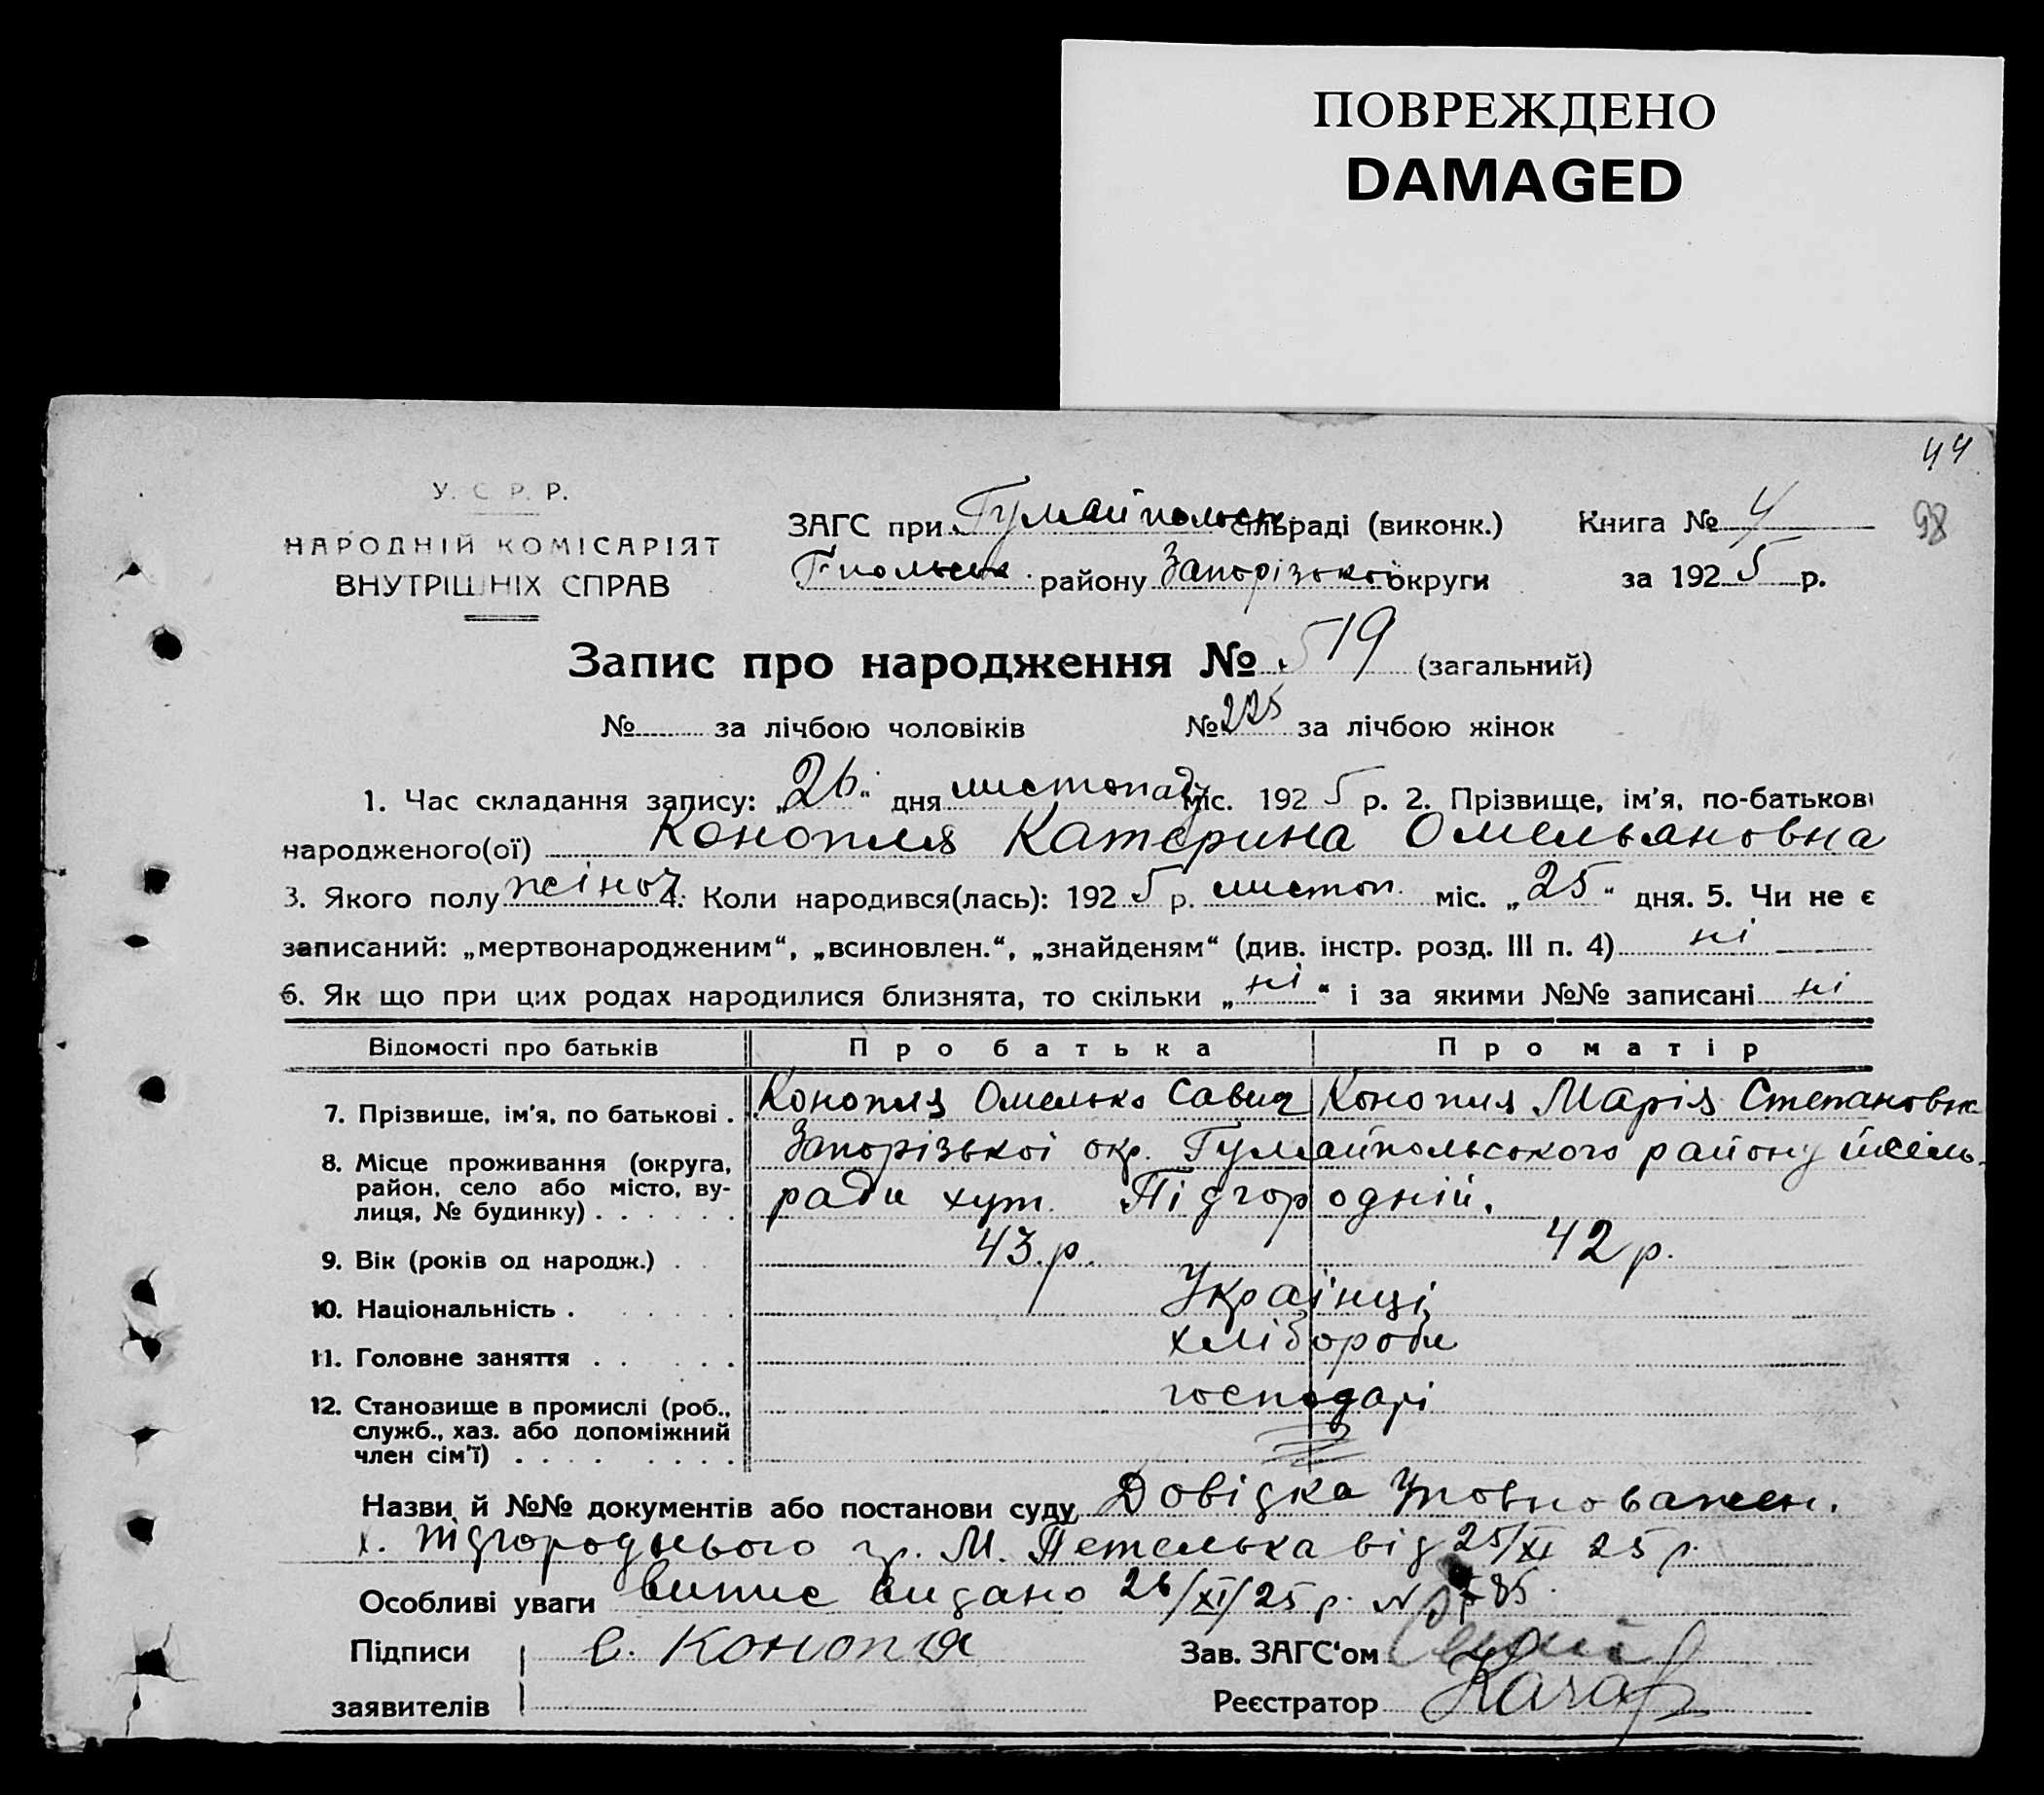 ПОВРЕЖДЕНО
DAMAGED
44
98
У. С. Р. Р.
НАРОДНІЙ КОМІСАРІЯТ
ВНУТРІШНІХ СПРАВ
ЗАГС при Гуляйпольськ сільраді (виконк.) Книга № 4
Г-польськ. району Запорізької округи за 1925 р.
Запис про народження № 519 (загальний)
№ за лічбою чоловіків № 225 за лічбою жінок
1. Час складання запису: „26“ дня листопаду міс. 1925 р. 2. Прізвище, ім'я, по-батькові
народженого(ої) Конопля Катерина Омельяновна
3. Якого полу жіноч. 4. Коли народився(лась): 1925 р. листоп. міс. „25“ дня. 5. Чи не є
записаний: „мертвонародженим“, „всиновлен.“, „знайденям“ (див. інстр. розд. III п. 4) ні
6. Як що при цих родах народилися близнята, то скільки „ні“ і за якими №№ записані ні
Відомості про батьків Про батька Про матір
7. Прізвище, ім'я, по батькові . Конопля Омелько Савич Конопля Марія Степановна
8. Місце проживання (округа, район, село або місто, вулиця, № будинку) Запорізької окр. Гуляйпольського району сіль-
ради хут. Підгородній.
9. Вік (років од народж.) 43.р. 42 р.
10. Національність . Українці
11. Головне заняття . . хлібороби
12. Становище в промислі (роб., служб., хаз. або допоміжний член сім'ї) господарі
Назви й №№ документів або постанови суду Довідка Уповноважен.
х. Підгороднього гр. М. Петелька від 25/XI 25 р.
Особливі уваги Випис видано 26/XI/25 р. №
Підписи Є. Конопля Зав. ЗАГС'ом
заявителів Реєстратор